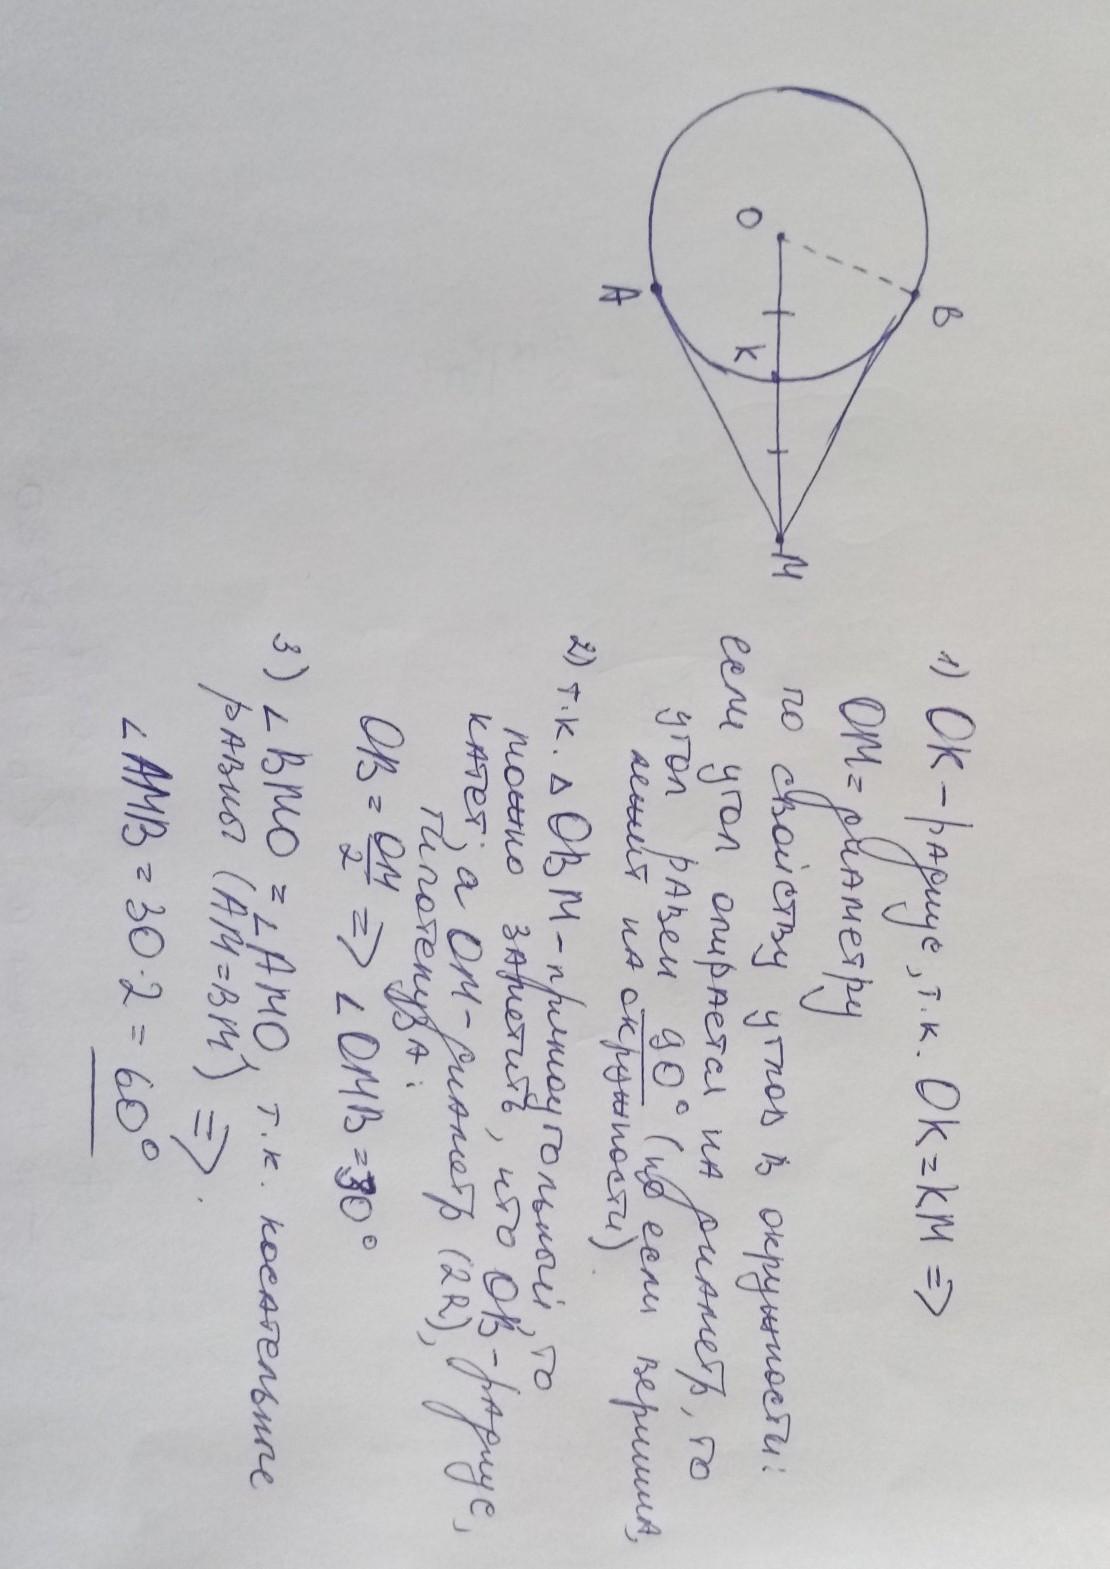 O
A
B
K
M
1) OK - радиус, т.к. OK = KM =>
OM = диаметру
по свойству углов в окружности:
если угол опирается на диаметр, то
угол равен 90° (но если вершина,
лежит на окружности)
2) т.к. △ OBM - прямоугольный, то
можно заметить, что OB - радиус,
катет, а OM - диаметр (2R),
гипотенуза:
OB = OM/2 => ∠ OMB = 30°
3) ∠ BMO = ∠ AMO, т.к. косательные
равны (AM = BM) =>.
∠ AMB = 30 · 2 = 60°